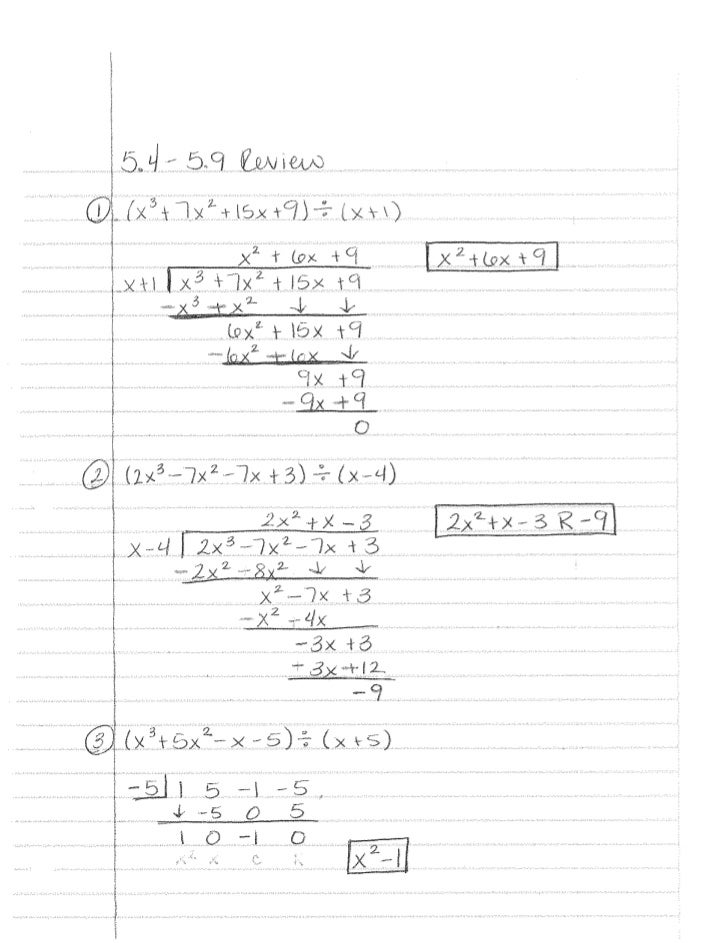 5.4 - 5.9 Review
① (x³ + 7x² + 15x + 9) ÷ (x+1)
x² + 6x + 9
x² + 6x + 9
x+1 x³ + 7x² + 15x + 9
- x³ + x² ↓ ↓
6x² + 15x + 9
- 6x² + 6x ↓
9x + 9
- 9x + 9
0
② (2x³ - 7x² - 7x + 3) ÷ (x - 4)
2x² + x - 3
2x² + x - 3 R - 9
x - 4 2x³ - 7x² - 7x + 3
- 2x² - 8x² ↓ ↓
x² - 7x + 3
- x² - 4x
- 3x + 3
- 3x + 12
- 9
③ (x³ + 5x² - x - 5) ÷ (x + 5)
-5 1 5 -1 -5
↓ -5 0 5
1 0 -1 0
x² x c R
x² - 1